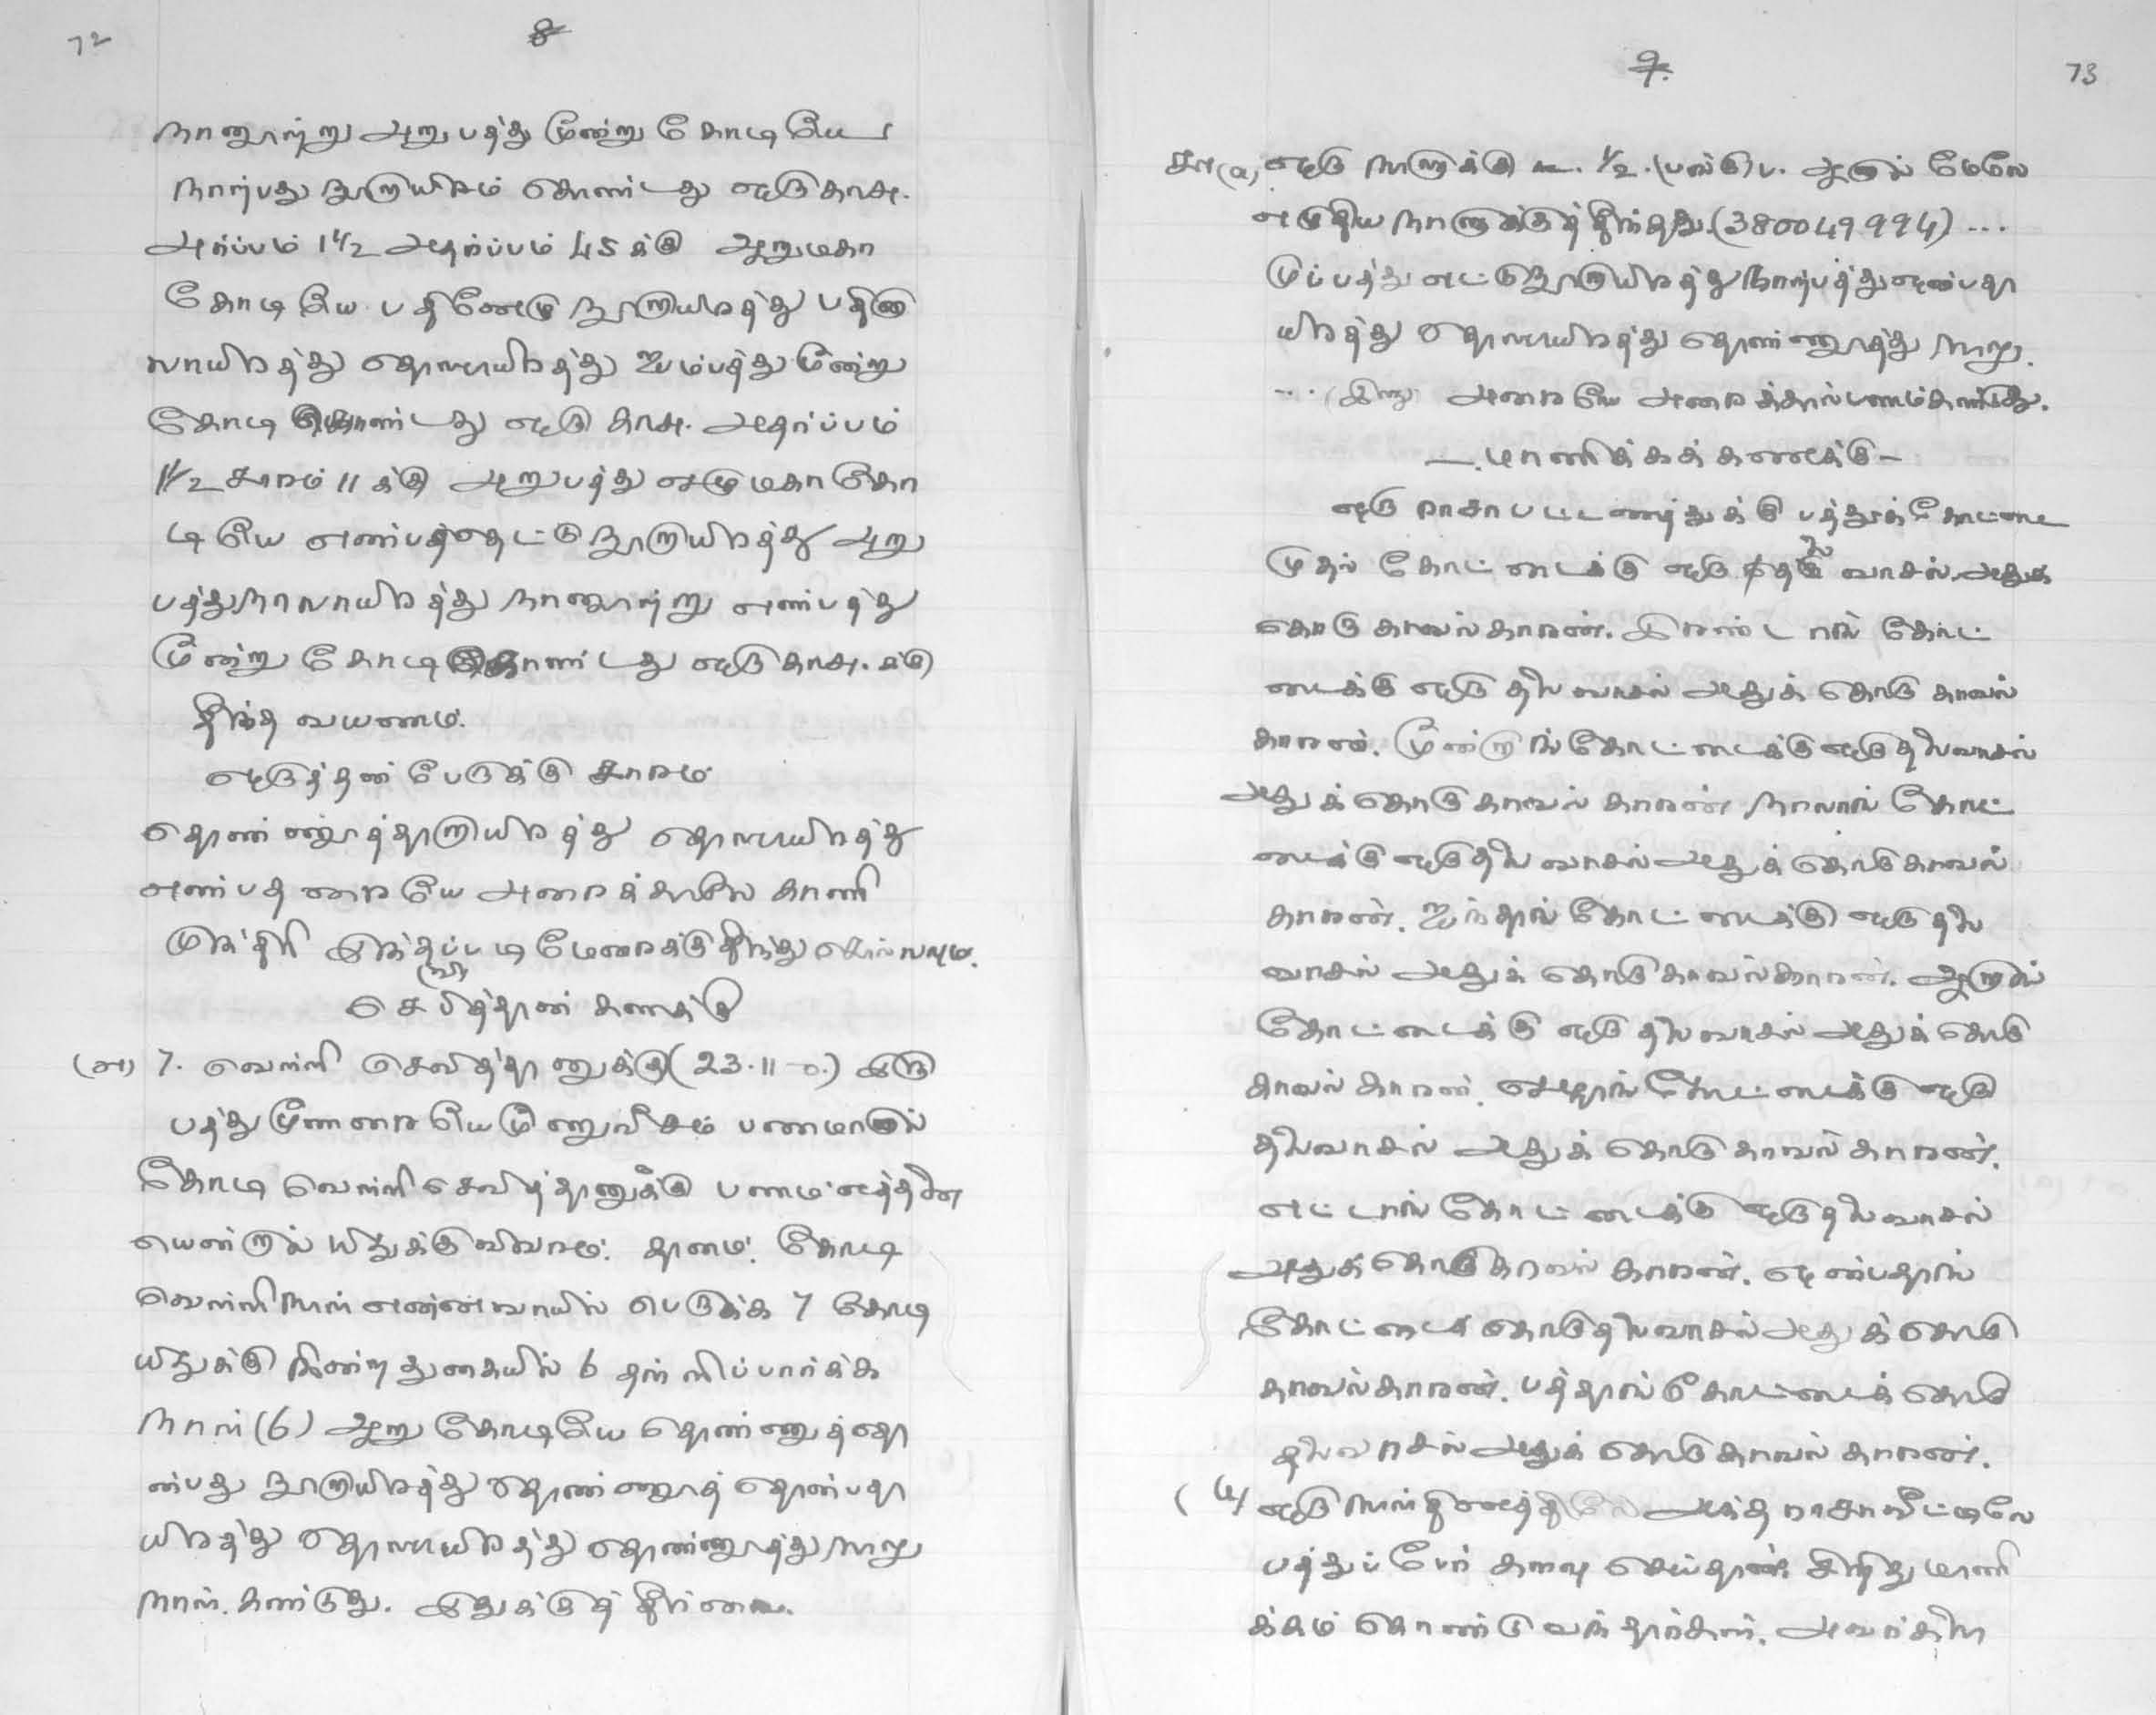 72
8
நானூற்று அறுபத்து மூன்று கோடியே
நாற்பது நூறாயிரம் கொண்டது ஒரு காசு.
அற்ப்பம் 1½ அதற்ப்பம் 45 க்கு ஆறுமகா
கோடியே பதினேழு நூறாயிரத்து பதினா
லாயிரத்து தொளாயிரத்து ஐம்பத்து மூன்று
கோடி கொண்டது ஒரு காசு. அதற்ப்பம்
1½ சாரம் 11 க்கு அறுபத்து எழுமகாகோ
டியே எண்பத்தெட்டு நூறாயிரத்து அறு
பத்துநாலாயிரத்து நானூற்று எண்பத்து
மூன்று கோடி கொண்டது ஒரு காசு. க்கு
தீர்ந்த வயணம்.
ஒருத்தன் பேருக்கு சாரம்
தொண்ணூத்தாறாயிரத்து தொளாயிரத்து
எண்பத்
அரைக்காலே காணி
முந்திரி இந்தப்படி மேரைக்கு தீர்ந்து கொள்ளவும்.
செபித்தான் கணக்கு
(வி)
7. வெள்ளி செவித்தானுக்கு (23.11-0.) இரு
பத்து மூணரையே மூணுவீசம் பணமானால்
கோடி வெள்ளி செவித்தானுக்கு பணம் எத்தனை
யென்றால் யிதுக்கு விவரம். தானம். கோடி
வெள்ளி நாள் எண்ணவாயில் பெருக்க 7 கோடி
யிதுக்கு நின்ற துகையில் 6 தள்ளிப்பார்க்க
நாள் (6) ஆறு கோடியே தொண்ணுத்தொ
ன்பது நூறாயிரத்து தொண்ணூத் தொன்பதா
யிரத்து தொளாயிரத்து தொண்ணூத்து நாலு
நாள். கண்டுது. இதுக்குத் தீர்வை.
9.
73
(a) ஒரு நாளுக்கு ½. (பங்கு) ப. ஆனால் மேலே
எழுதிய நாளுக்குத் தீர்ந்தது. (380049994) ...
முப்பத்து எட்டுநூறாயிரத்து நாற்பத்துஒன்பதா
யிரத்து தொளாயிரத்து தொண்ணூத்து நாலு.
... அரையே அரைக்கால் பணம் கண்டுது.
-. மாணிக்கக் கணக்கு -
ஒரு ராசா பட்டணத்துக்கு பத்துக் கோட்டை
முதல் கோட்டைக்கு ஒரு தலை வாசல் அதுக்
கொரு காவல்காரன். இரண்டாங் கோட்
டைக்கு ஒரு தலைவாசல் அதுக் கொரு காவல்
காரன். மூன்றாங்கோட்டைக்கு ஒரு தலைவாசல்
அதுக்கொரு காவல் காரன் நாலாங் கோட்
டைக்கு ஒரு தலை வாசல் அதுக் கொரு காவல்
காரன். ஐந்தாங் கோட்டைக்கு ஒரு தலை
வாசல் அதுக் கொரு காவல்காரன். ஆறாங்
கோட்டைக்கு ஒரு தலை வாசல் அதுக் கொரு
காவல் காரன். ஏழாங் கோட்டைக்கு ஒரு
தலைவாசல் அதுக் கொரு காவல் காரன்.
எட்டாங் கோட்டைக்கு ஒரு தலை வாசல்
அதுக் கொரு காவல் காரன். ஒன்பதாங்
கோட்டைக் கொரு தலைவாசல் அதுக் கொரு
காவல்காரன். பத்தாங் கோட்டைக் கொரு
தலைவாசல் அதுக் கொரு காவல் காரன்.
ஒரு நாள் தினத்திலே அந்த ராசா வீட்டிலே
பத்துப் பேர் களவு செய்தான் சிறிது மாணி
க்கம் கொண்டு வந்தார்கள். அவர்களை